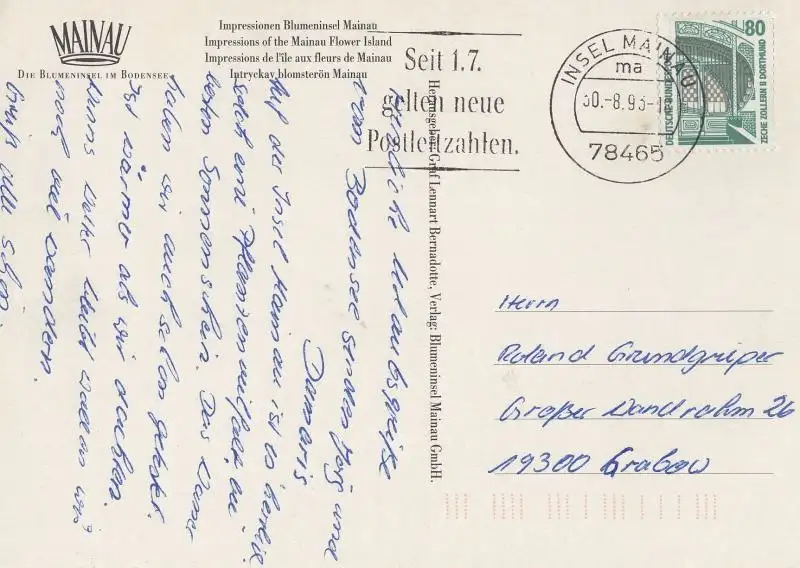 MAINAU
DIE BLUMENINSEL IM BODENSEE
Impressionen Blumeninsel Mainau
Impressions of the Mainau Flower Island
Impressions de l'île aux fleurs de Mainau
Intryckav blomsterön Mainau
Seit 1.7.
gelten neue
Postleitzahlen.
INSEL MAINAU
ma
30.-8.93-1
78465
80
DEUTSCHE BUNDESPOST
ZECHE ZOLLERN II DORTMUND
Herausgeber: Graf Lennart Bernadotte, Verlag: Blumeninsel Mainau GmbH.
Herzliche Urlaubsgrüße
vom Bodensee senden Jörg und
Damaris
Auf der Insel Mainau ist es herrlich
soviel eine Pflanzenvielfalt bei
bestem Sonnenschein. Das Wasser
haben wir auch schon getestet.
Ist wärmer als wir dachten.
Wenns Wetter bleibt wollen wir
noch viel wandern.
Gruß
Herrn
Roland Grundgrüper
Großer Wandrahm 26
19300 Grabow